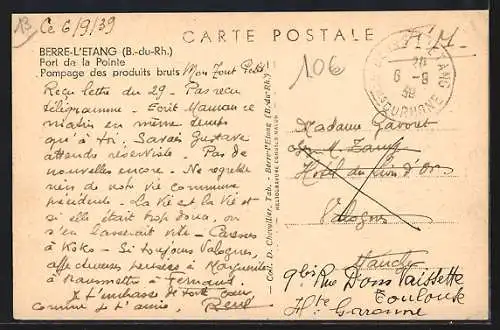 13
Ce 6/9/39
CARTE POSTALE
F.M.
BERRE-L'ETANG (B.-du-Rh.)
Port de la Pointe
Pompage des produits bruts
Mon Tout Petit
106
BERRE L'ETANG
20
6 - 9
39
BOUCHES DU RHONE
Reçu lettre du 29 - Pas reçu
télégramme - Ecrit Maman ce
matin en même temps
qu'à toi. Savais Gustave
attends réserviste. Pas de
nouvelles encore - Ne regrette
rien de notre vie commune
précédente. La Vie est la Vie et
si elle était trop douce, on
s'en lasserait vite - Caresses
à Koko - Si toujours Valognes,
affectueuses pensées à Marguerite
à Mammette à Fernand.
X t'embrasse de tout cœur
comme je t'aime. René
Coll. D. Chevallier, Tab. - Berre-l'Etang (B.-du-Rh.)
Madame Gavoret
Hôtel du Lion d'Or
Valognes
Manche
9 bis Rue Dom Vaissette
Toulouse
Hte Garonne